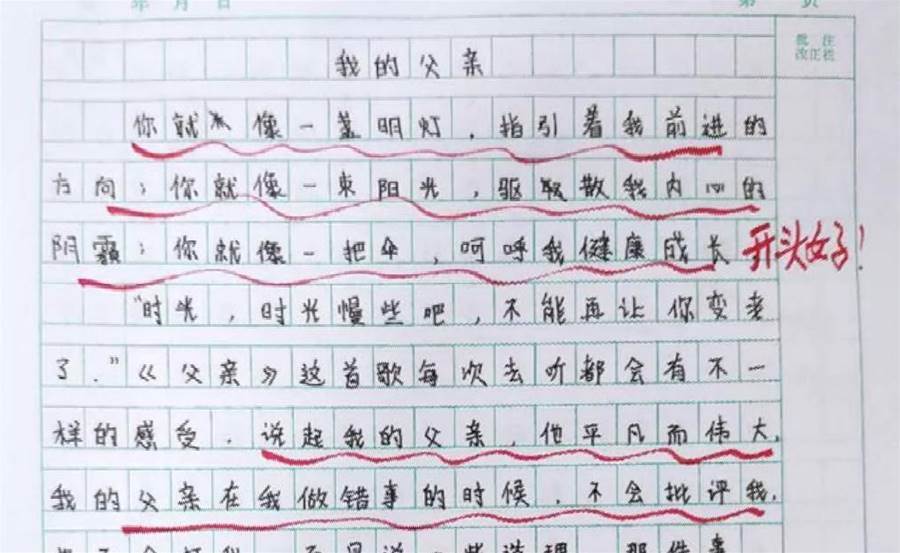 年 月 日 第 页
批 注
改正栏
我的父亲
你就像一盏明灯，指引着我前进的
方向；你就像一束阳光，驱散我内心的
阴霾；你就像一把伞，呵呼我健康成长 开头好！
“时光，时光慢些吧，不能再让你变老
了.”《父亲》这首歌每次去听都会有不一
样的感受.说起我的父亲，他平凡而伟大.
我的父亲在我做错事的时候，不会批评我.
那件事